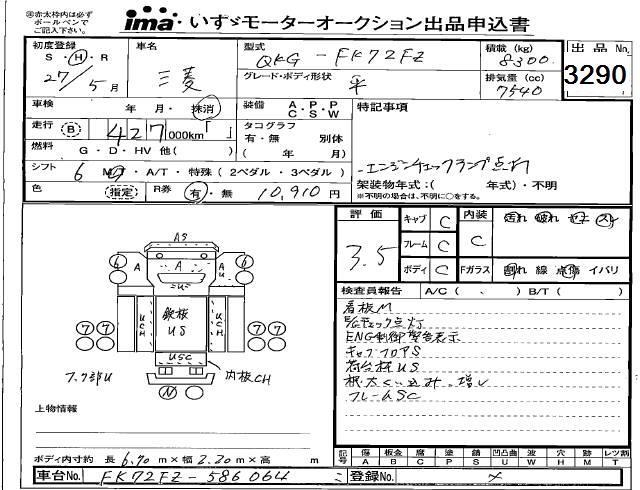 ※赤太枠内は必ず
ボールペンで
ご記入下さい。
ima・いすゞモーターオークション出品申込書
初度登録
S・H・R
27/5月
車名
三菱
型式
QKG-FK72FZ
グレード・ボディ形状
平
積載(kg)
8300
排気量(cc)
7540
出品No.
3290
車検
年 月・抹消
装備
A・P・P
C・S・W
特記事項
走行 B 427,000km「 」
タコグラフ
有・無 別体
( 年 月)
燃料 G・D・HV 他( )
-エンジンチェックランプ点灯
シフト 6 MT・A/T・特殊(2ペダル・3ペダル)
架装物年式:( 年式)・不明
※不明の場合は、不明に○をする。
色 (指定) R券 有・無 10,910円
評価
3.5
キャブ C
フレーム C
ボディ C
内装
C
汚れ 破れ
Fガラス 割れ 線 点傷 イバリ
検査員報告 A/C( 、 ) B/T( )
看板M
E/Gチェック点灯
ENG制御警告表示
キャブフロアPS
荷台柱US
フレームSC
AS
A
A
A
U
6
6
UCH
鉄板
US
UCH
7 7
7 7
USC
内板CH
N
上物情報
ボディ内寸約 長 6.70 m×幅 2.20 m×高 m
記号
傷 板金 腐 塗 錆 凹凸曲 波 穴 跡 レンズ割
A B C P S U W H M T
車台No. FK72FZ-586064
登録No.